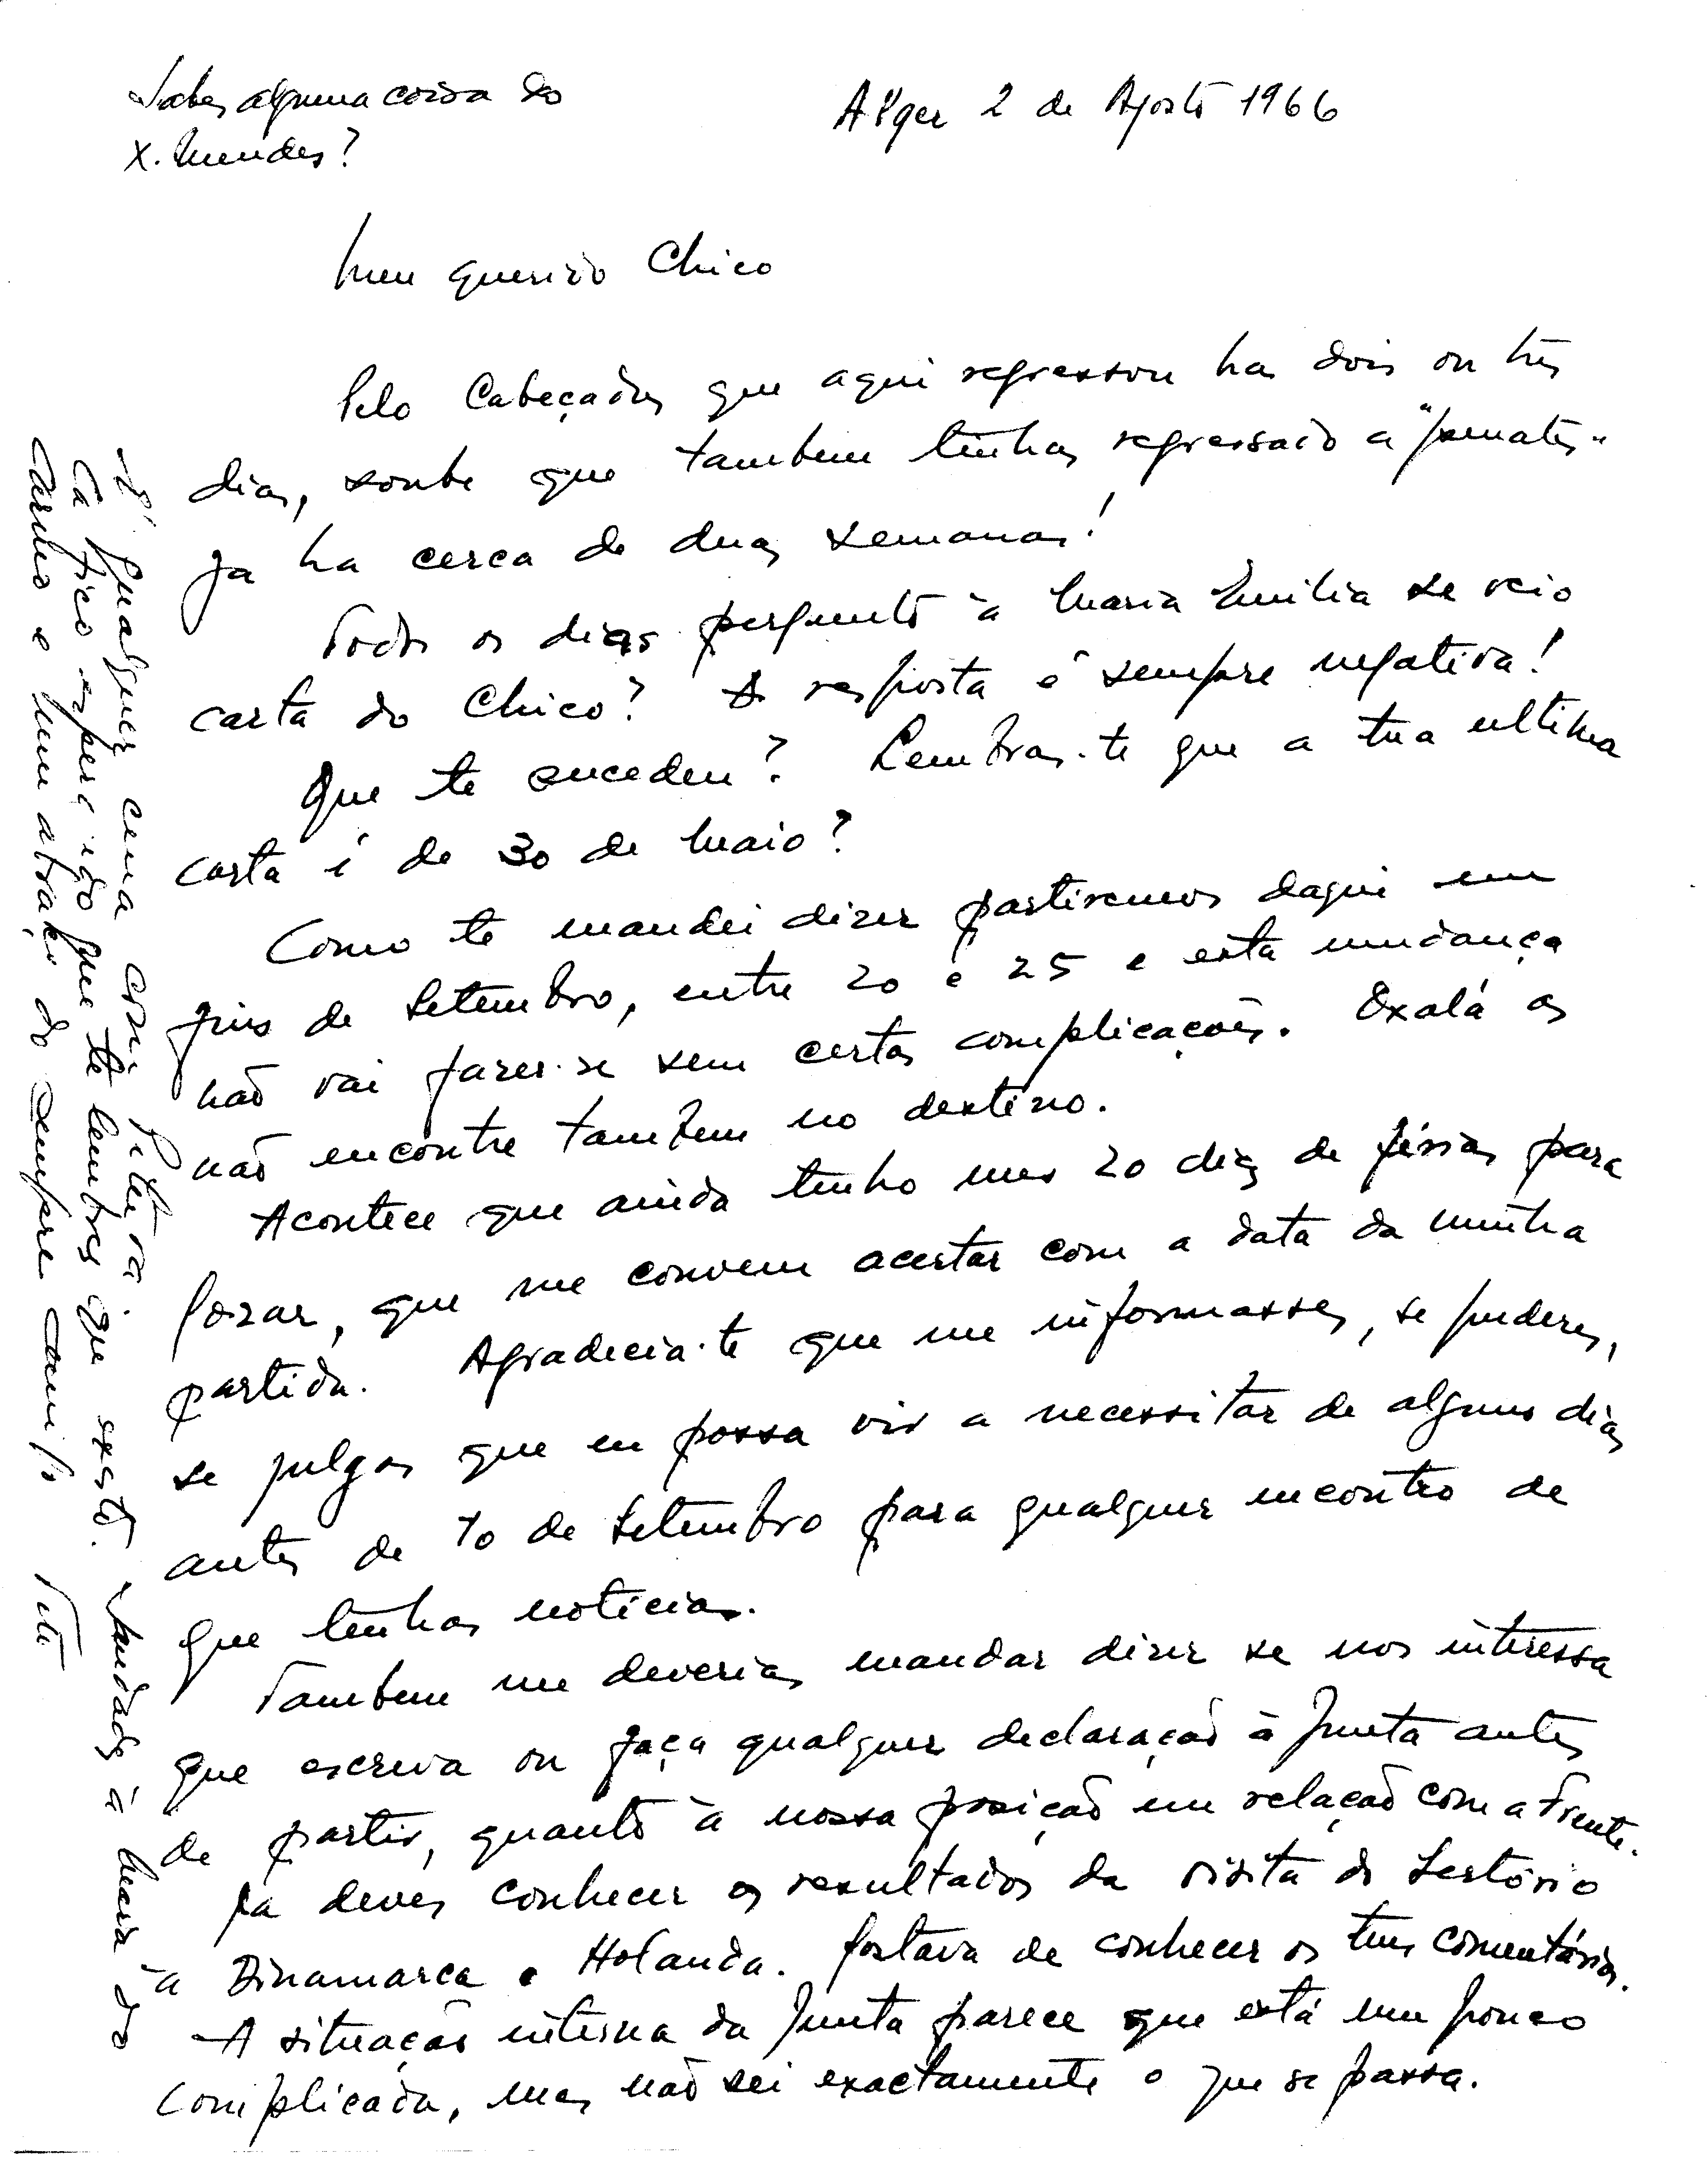 Sabes alguma coisa do
X. Mendes?
Alger 2 de Agosto 1966
Meu querido Chico
Pelo Cabeçadas que aqui regressou ha dois ou três
dias, soube que tambem tinhas regressado a "penates"
ja ha cerca de duas semanas!
Todos os dias pergunto à Maria Emilia se veio
carta do Chico? A resposta é sempre negativa!
Que te sucedeu? Lembras-te que a tua ultima
carta é de 30 de Maio?
Como te mandei dizer partiremos daqui em
fins de Setembro, entre 20 e 25 e esta mudança
não vai fazer-se sem certas complicações. Oxalá as
não encontre tambem no destino.
Acontece que ainda tenho uns 20 dias de férias para
gozar, que me convem acertar com a data da minha
partida. Agradecia-te que me informasses, se puderes,
se julgas que eu possa vir a necessitar de alguns dias
antes de 10 de Setembro para qualquer encontro de
que tenhas noticias.
Tambem me deverias mandar dizer se nos interessa
que escreva ou faça qualquer declaração à Junta antes
de partir, quanto à nossa posição em relação com a Frente.
Ja deves conhecer os resultados da visita do Sertório
à Dinamarca e Holanda. Gostava de conhecer os teus comentários.
A situação interna da Junta parece que está um pouco
complicada, mas não sei exactamente o que se passa.
Se qualquer coisa
Cá fico esperando que te lembres que existo. Saudades à Maria do
Carmo e um abraço do sempre amigo